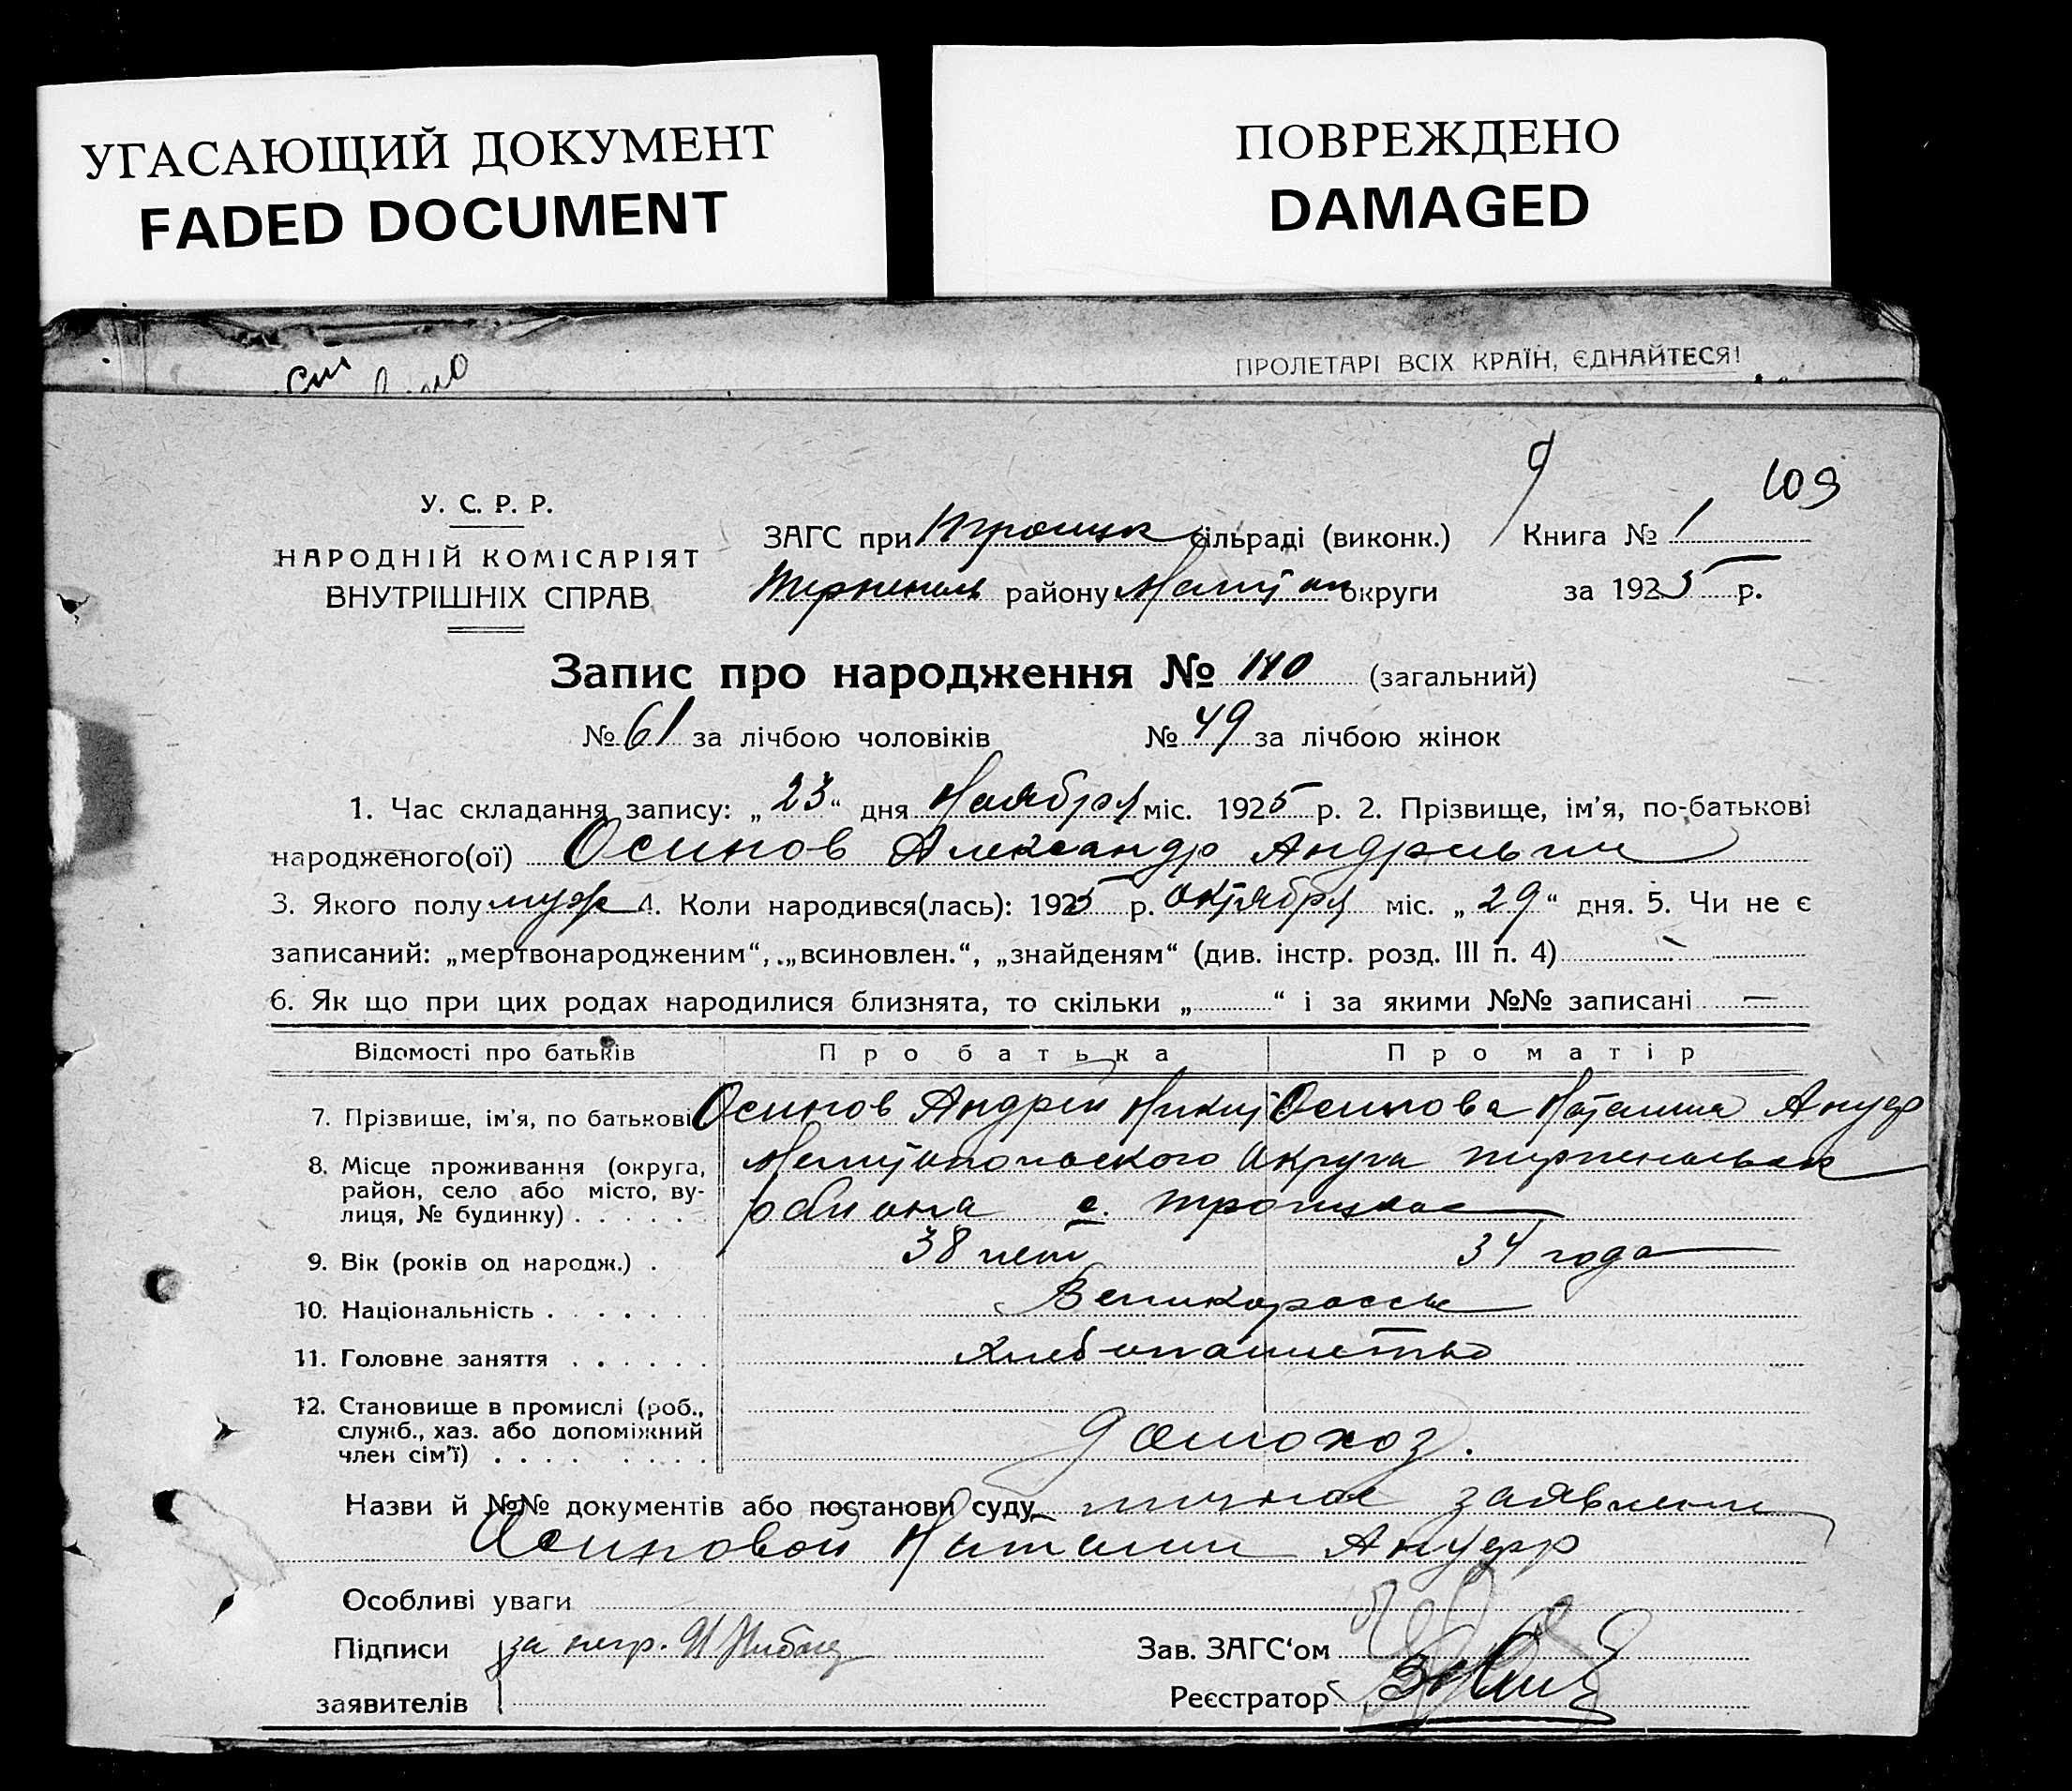 УГАСАЮЩИЙ ДОКУМЕНТ
FADED DOCUMENT
ПОВРЕЖДЕНО
DAMAGED
ПРОЛЕТАРІ ВСІХ КРАЇН, ЄДНАЙТЕСЯ!
109
У. С. Р. Р.
НАРОДНІЙ КОМІСАРІЯТ
ВНУТРІШНІХ СПРАВ
ЗАГС при Троицк сільраді (виконк.) Книга № 1
району Мелит округи за 1925 р.
Запис про народження № 110 (загальний)
№ 61 за лічбою чоловіків № 49 за лічбою жінок
1. Час складання запису: „23“ дня Ноября міс. 1925 р. 2. Прізвище, ім'я, по-батькові
народженого(ої) Осипов Александр Андреевич
3. Якого полу муж 4. Коли народився(лась): 1925 р. октября міс. „29“ дня. 5. Чи не є
записаний: „мертвонародженим“, „всиновлен.“, „знайденям“ (див. інстр. розд. III п. 4)
6. Як що при цих родах народилися близнята, то скільки „ “ і за якими №№ записані —
Відомості про батьків Про батька Про матір
7. Прізвише, ім'я, по батькові Осипов Андрей Никит Осипова Наталия Ануфр
8. Місце проживання (округа, район, село або місто, вулиця, № будинку) Мелитопольского Округа
района с. Троицкое
9. Вік (років од народж.) 38 лет 34 года
10. Національність Великороссы
11. Головне заняття Хлебопашество
12. Становище в промислі (роб., служб., хаз. або допоміжний член сім'ї) домохоз.
Назви й №№ документів або постанови суду личное заявление
Осиповой Наталии Ануфр
Особливі уваги
Підписи за негр. Зав. ЗАГС‘ом
заявителів Реєстратор